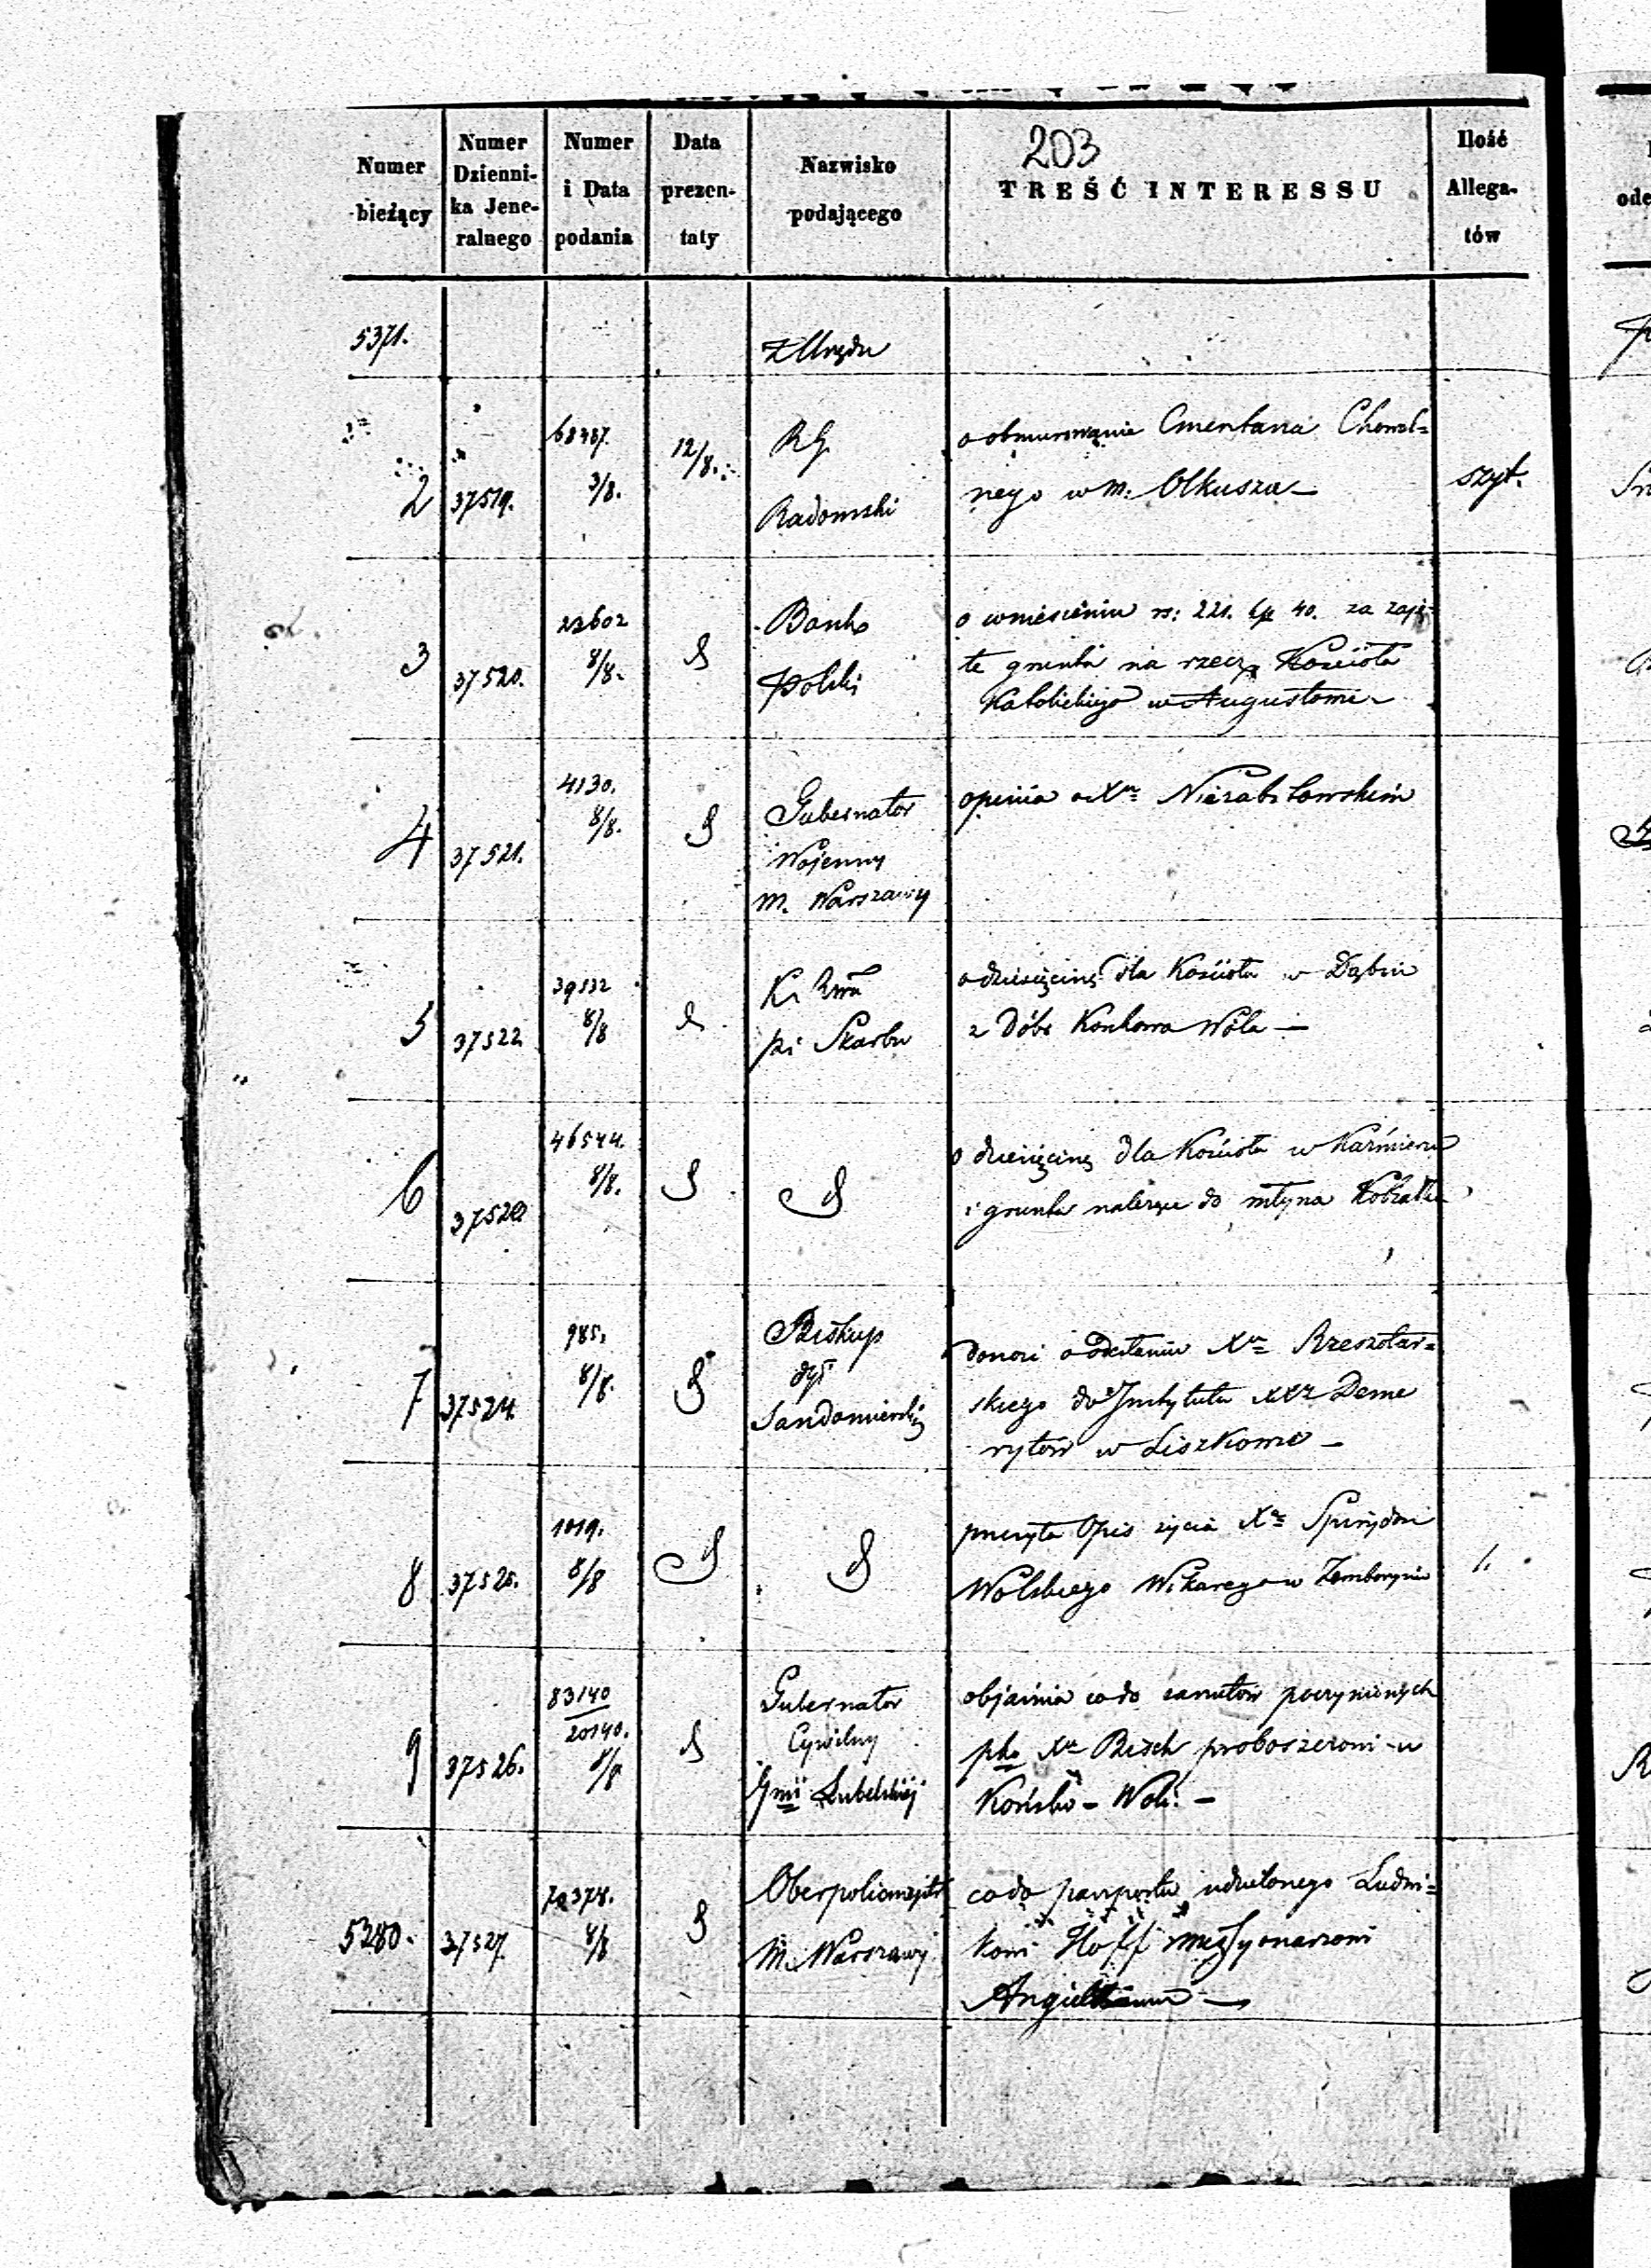 203
Numer bieżący
Numer Dzienni- ka Jene- ralnego
Numer i Data podania
Data prezen- taty
Nazwisko podającego
TREŚĆ INTERESSU
Ilość Allega- tów
5371.
z Urzędu
2 37519. 68467. 3/8. 12/8.
RG
Radomski
o obmurowanie Cmentarza
nego w m: Olkuszu —
szyt.
3 37520. 22602 8/8.
Bank
Polski
o wniesieniu rs: 221. kp 40. za zaję-
te grunta na rzecz Kościoła
Katolickiego w Augustowie
4 37521. 4130. 8/8.
Gubernator
Wojenny
m. Warszawy
opinia o Xu
5 37522 39532 8/8
K. Rwa
Pi Skarbu
o dziesięcinę dla Kościoła w Dąbiu
z Dóbr Wola —
6 46544. 8/8.
o dziesięcinę dla Kościoła w Kaźmierzu
i grunta należące do młyna
7 37524. 985. 8/8.
Biskup
dyi
Sandomierskiej
donosi o odesłaniu Xa Rzeszotar=
skiego do Instytutu XXz Deme
rytów w Liszkowie —
8 37525. 1019. 8/8
przesyła Opis życia Xa Spirydona
Wolskiego Wikarego w
1.
9 37526. 83140 20140. 8/8
Gubernator
Cywilny
Gnii Lubelskiej
objaśnia co do zarzutów poczynionych
pko Xu proboszczowi w
Końsko-Woli. —
5280. 37527. 8/8
Oberpolicmajster
m. Warszawy
co do paszportu udzielonego Ludwi=
kowi Hoff missyonarzowi